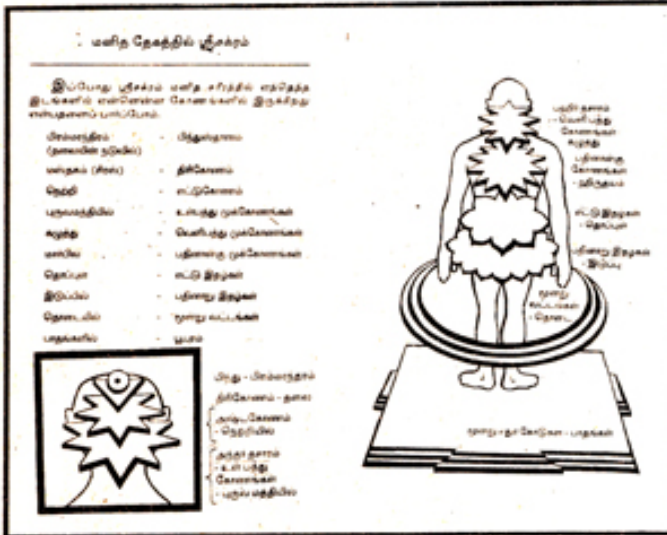 மனித தேகத்தில் ஸ்ரீசக்ரம்
இப்போது ஸ்ரீசக்ரம் மனித சரீரத்தில் எந்தெந்த
இடங்களில் என்னென்ன கோணங்களில் இருக்கிறது
என்பதனைப் பார்ப்போம்.
பிரம்மரந்திரம் - பிந்துஸ்தானம்
(தலையின் நடுவில்)
மஸ்தகம் (சிரஸ்) - திரிகோணம்
நெற்றி - எட்டுகோணம்
புருவமத்தியில் - உள்பத்து முக்கோணங்கள்
கழுத்து - வெளிபத்து முக்கோணங்கள்
மார்பில் - பதினான்கு முக்கோணங்கள்
தொப்புள் - எட்டு இதழ்கள்
இடுப்பில் - பதினாறு இதழ்கள்
தொடையில் - மூன்று வட்டங்கள்
பாதங்களில் - பூபுரம்
பிந்து - பிரம்மரந்தரம்
திரிகோணம் - தலை
அஷ்டகோணம்
- நெற்றியில்
அந்தர் தசாரம்
- உள் பத்து
கோணங்கள்
- புருவ மத்தியில்
பஹிர் தசாரம்
- வெளி பத்து
கோணங்கள்
கழுத்து
பதினான்கு
கோணங்கள்
- ஹிருதயம்
எட்டு இதழ்கள்
- தொப்புள்
பதினாறு இதழ்கள்
- இடுப்பு
மூன்று
வட்டங்கள்
- தொடை
மூன்று கோடுகள் - பாதங்கள்